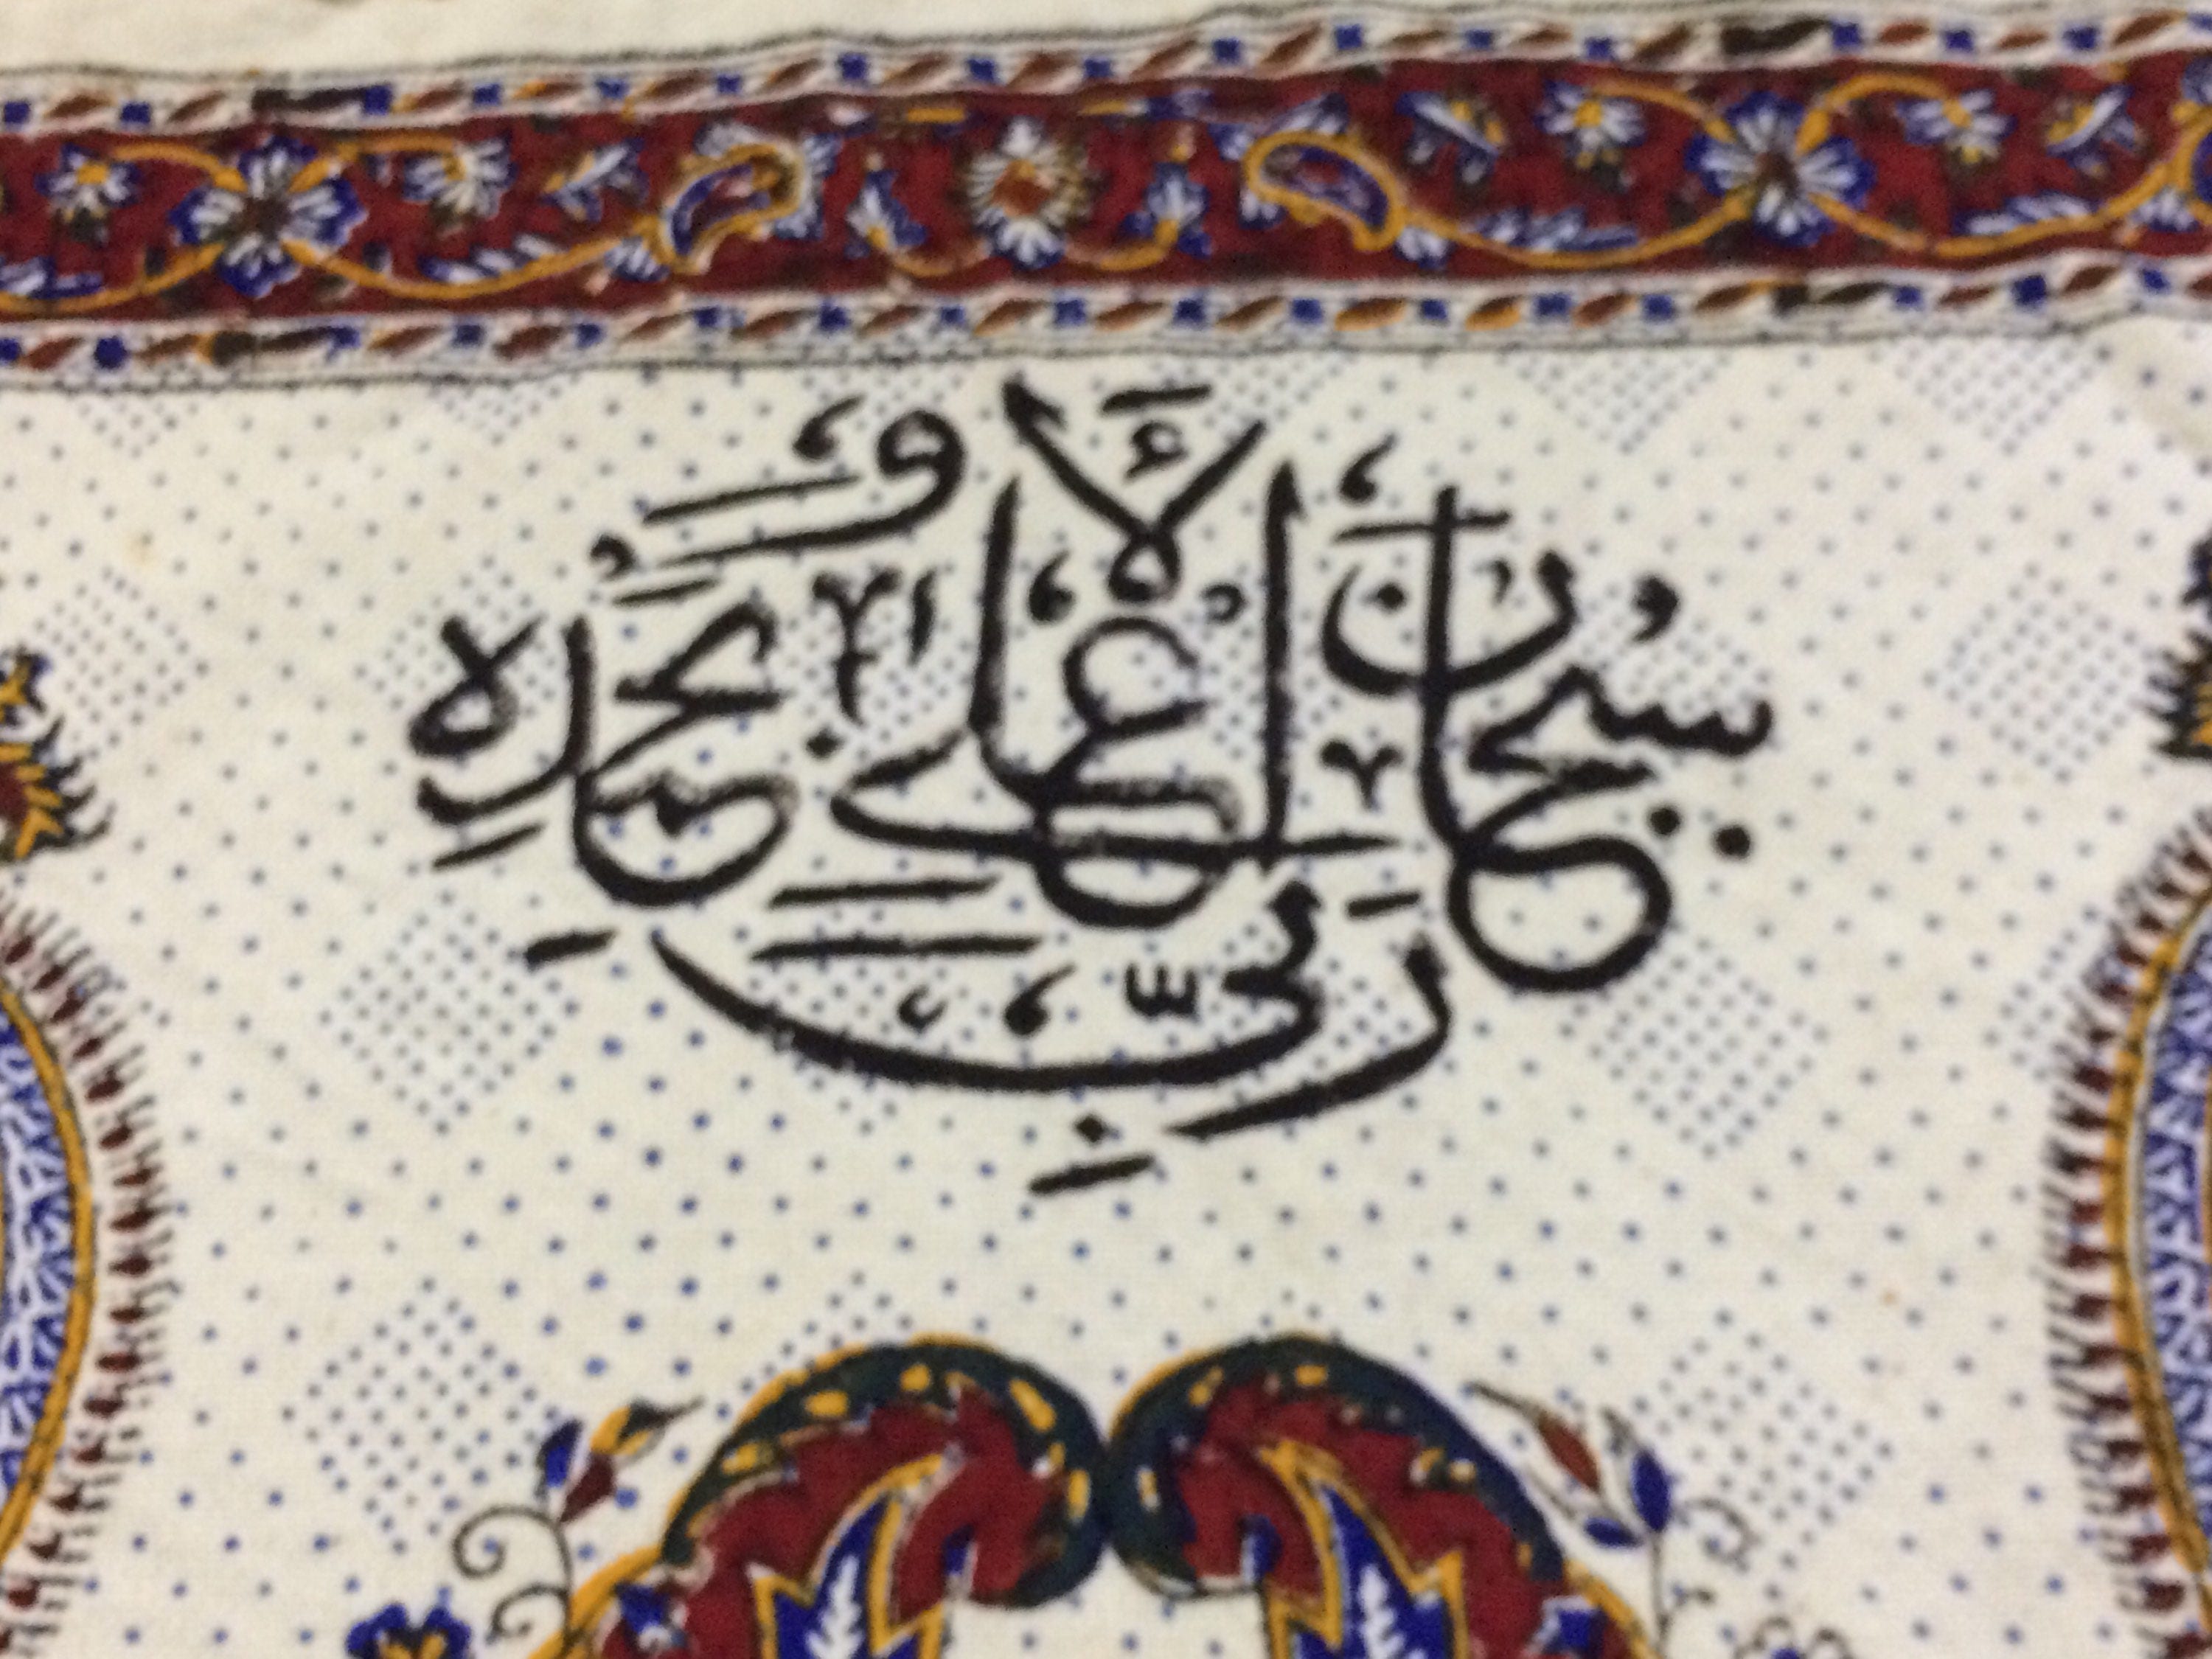 سُبْحَانَ رَبِّيَ الْأَعْلَى وَبِحَمْدِهِ